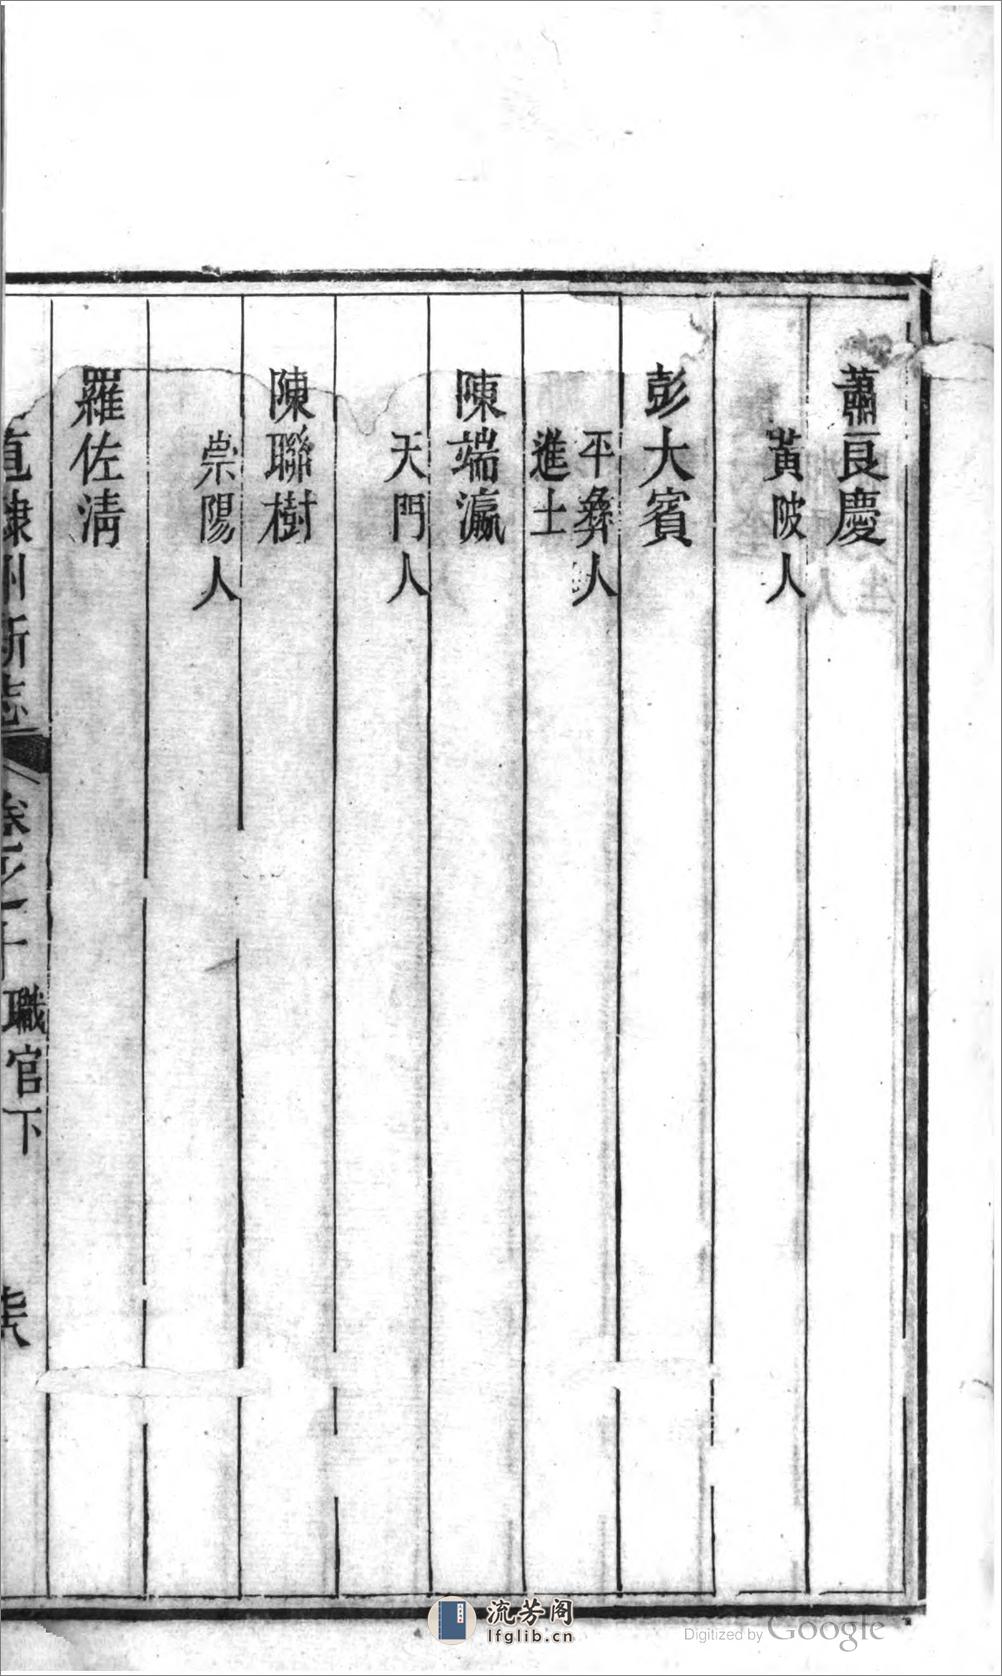 蕭良慶
黃陂人
彭大賓
平彝人
進士
陳端瀛
天門人
陳聯樹
崇陽人
羅佐清
直隸州新志
卷之十
職官下
流芳阁
lfglib.cn
Digitized by Google